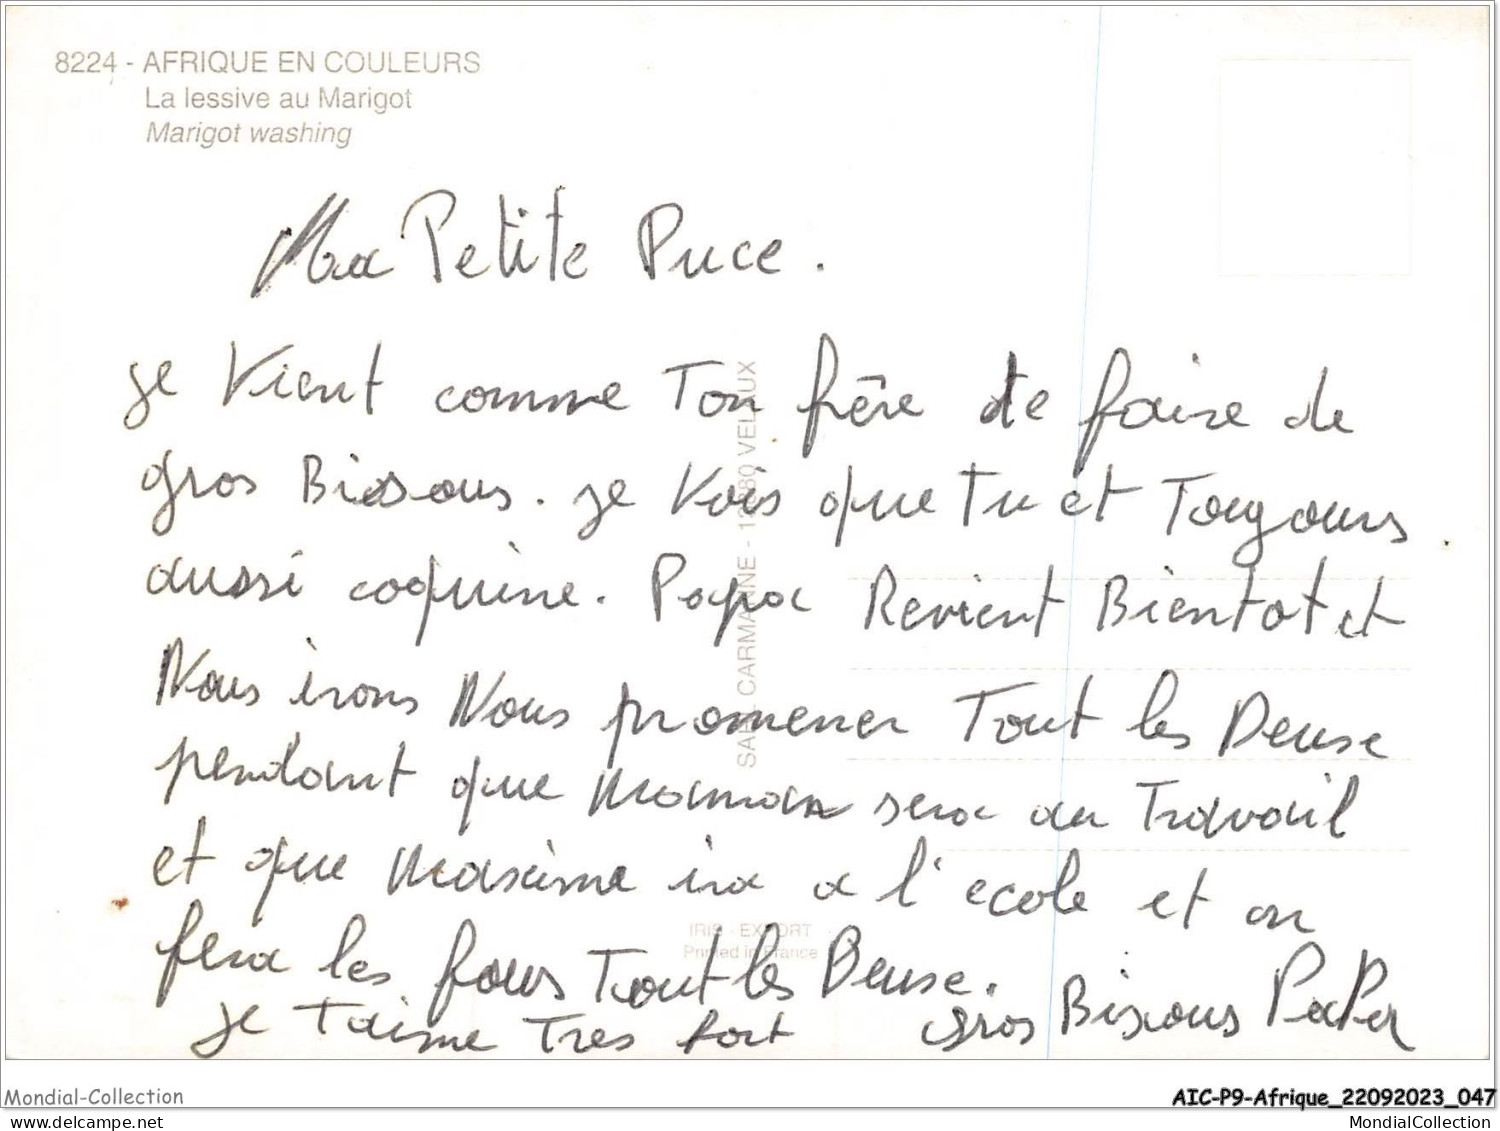 8224 - AFRIQUE EN COULEURS
La lessive au Marigot
Marigot washing
Ma Petite Puce.
je Vient comme Ton frêre te faire de
gros Bissous. je Vois que Tu et Tougours
aussi coquine. Papa Revient Bientot et
Nous irons Nous promener Tout les Deuse
pendant que Maman sera au Travail
et que Maxime ira a l'ecole et on
fera les fous Tout les Deuse.
je Taime Tres fort Gros Bisous PaPa
SARL CARMANNE - VELAUX
IRIS - EXPORT
Printed in France
Mondial-Collection
delcampe.net
AIC-P9-Afrique_22092023_047
MondialCollection